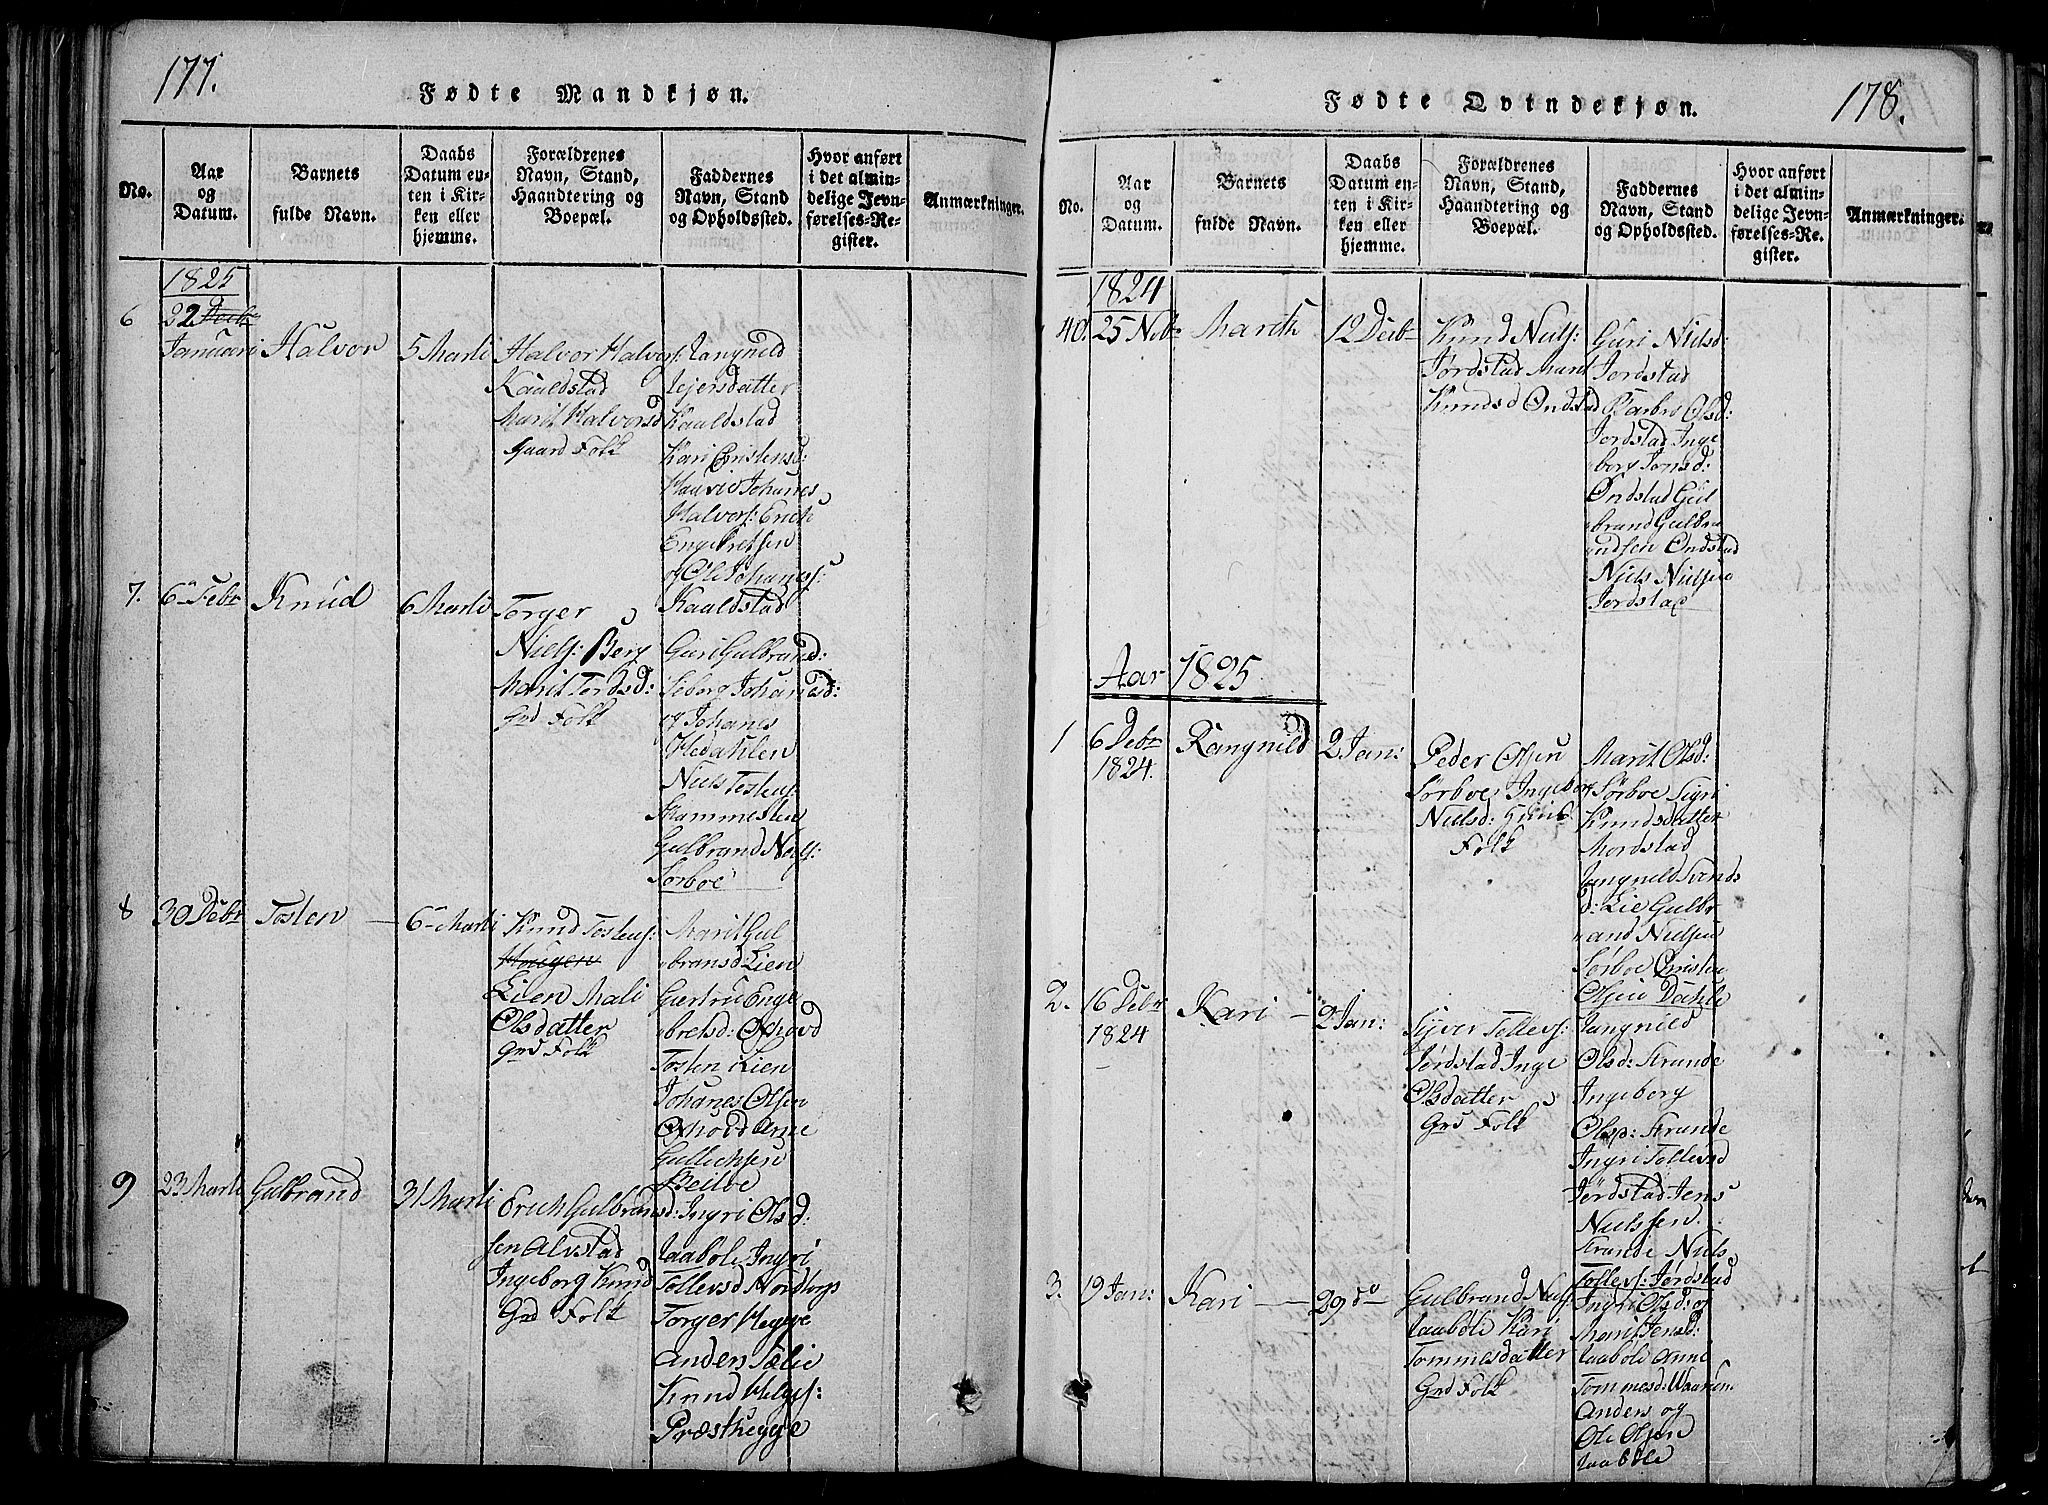 177.
Fødte Mandkjøn.
No.
Aar
og
Datum.
Barnets
fulde Navn.
Daabs
Datum en-
ten i Kir-
ken eller
hjemme.
Forældrenes
Navn, Stand,
Haandtering og
Boepæl.
Faddernes
Navn, Stand
og Opholdssted.
Hvor anført
i det almin-
delige Jevn-
førelses-Re-
gister.
Anmærkninger.
1825
6
22
Januari
Halvor
5 Marti
Halvor Halvors:
Kaaldstad
Marit Halvorsd
Gaard Folk
Rangnild
Kaaldstad
Kari Cristensd:
Haavi Johanes
Halvors: Erich
Engebretsen
og Ole Johaness:
Kaaldstad
7.
6 Febr
Knud
6 Marti
Torger
Niels: Berg
Marit Tordsd:
Grd Folk
Guri Gulbrandsd:
Seborg Johanesd:
og Johanes
Hedahlen
Niels Tostens:
Hammesten
Gulbrand Niels:
Sørboe
8
30 Debr
Tosten
6 Marti
Knud Tostens:
Haugen
Lien Mali
Olsdatter
Grd Folk
Marit Gul
bransd: Lien
Giertru Enge
bretsd: Oxhovd
Tosten Lien
Johanes Olsen
Oxhovd Arne
Gullichsen
Beilve
9
23 Marti
Gulbrand
31 Marti
Erich Gulbrand
sen Alvstad
Ingeborg Knud
Grd Folk
Ingri Olsd:
Raabøle Ingri
Tollevsd Nordtorp
Torger Hegge
Anders Sælie
Knud Helges:
Præsthegge
178.
Fødte Qvindekjøn.
No.
Aar
og
Datum.
Barnets
fulde Navn.
Daabs
Datum en-
ten i Kir-
ken eller
hjemme.
Forældrenes
Navn, Stand,
Haandtering og
Boepæl.
Faddernes
Navn, Stand
og Opholdssted.
Hvor anført
i det almin-
delige Jevn-
førelses-Re-
gister.
Anmærkninger.
1824
40.
25 Nobr
Marith
12 Debr
Knud Niels:
Jørdstad Marit
Knudsd Øndstad
Guri Nielsd:
Jordstad
Barbro Olsd:
Jordstad Inge
borg Jonsd:
Øndstad Gul
brand Gulbra
ndsen Øndstad
Niels Nielsen
Jordstad
Aar 1825
1
6 Debr
1824.
Rangnild
2 Jan:
Peder Olsen
Sørboe Ingeborg
Nielsd:
Folk
Marit Olsd:
Sørboe Sigri
Knudsdatter
Mordstad
Rangnild Svends
d: Lie Gulbr
and Nielsen
Sørboe Cristen
Olsen Dahle
2.
16 Debr
1824
Kari
2 Jan:
Syver Tollevs:
Jørdstad Inge
Olsdatter
Grd Folk
Rangnild
Olsd: Strande
Ingeborg
Olsd: Strande
Ingri Tollevsd
Jørdstad Jens
Nielssen
Strande Niels
Tollevs: Jørdstad
3.
19 Jan:
Kari
29 do
Gulbrand Niels:
Raabøle Kari
Tommesdatter
Grd Folk
Ingri Olsd: og
Marit Jensd:
Raabøle Anne
Tommesd:
Anders og
Ole Olsen
Raabøle